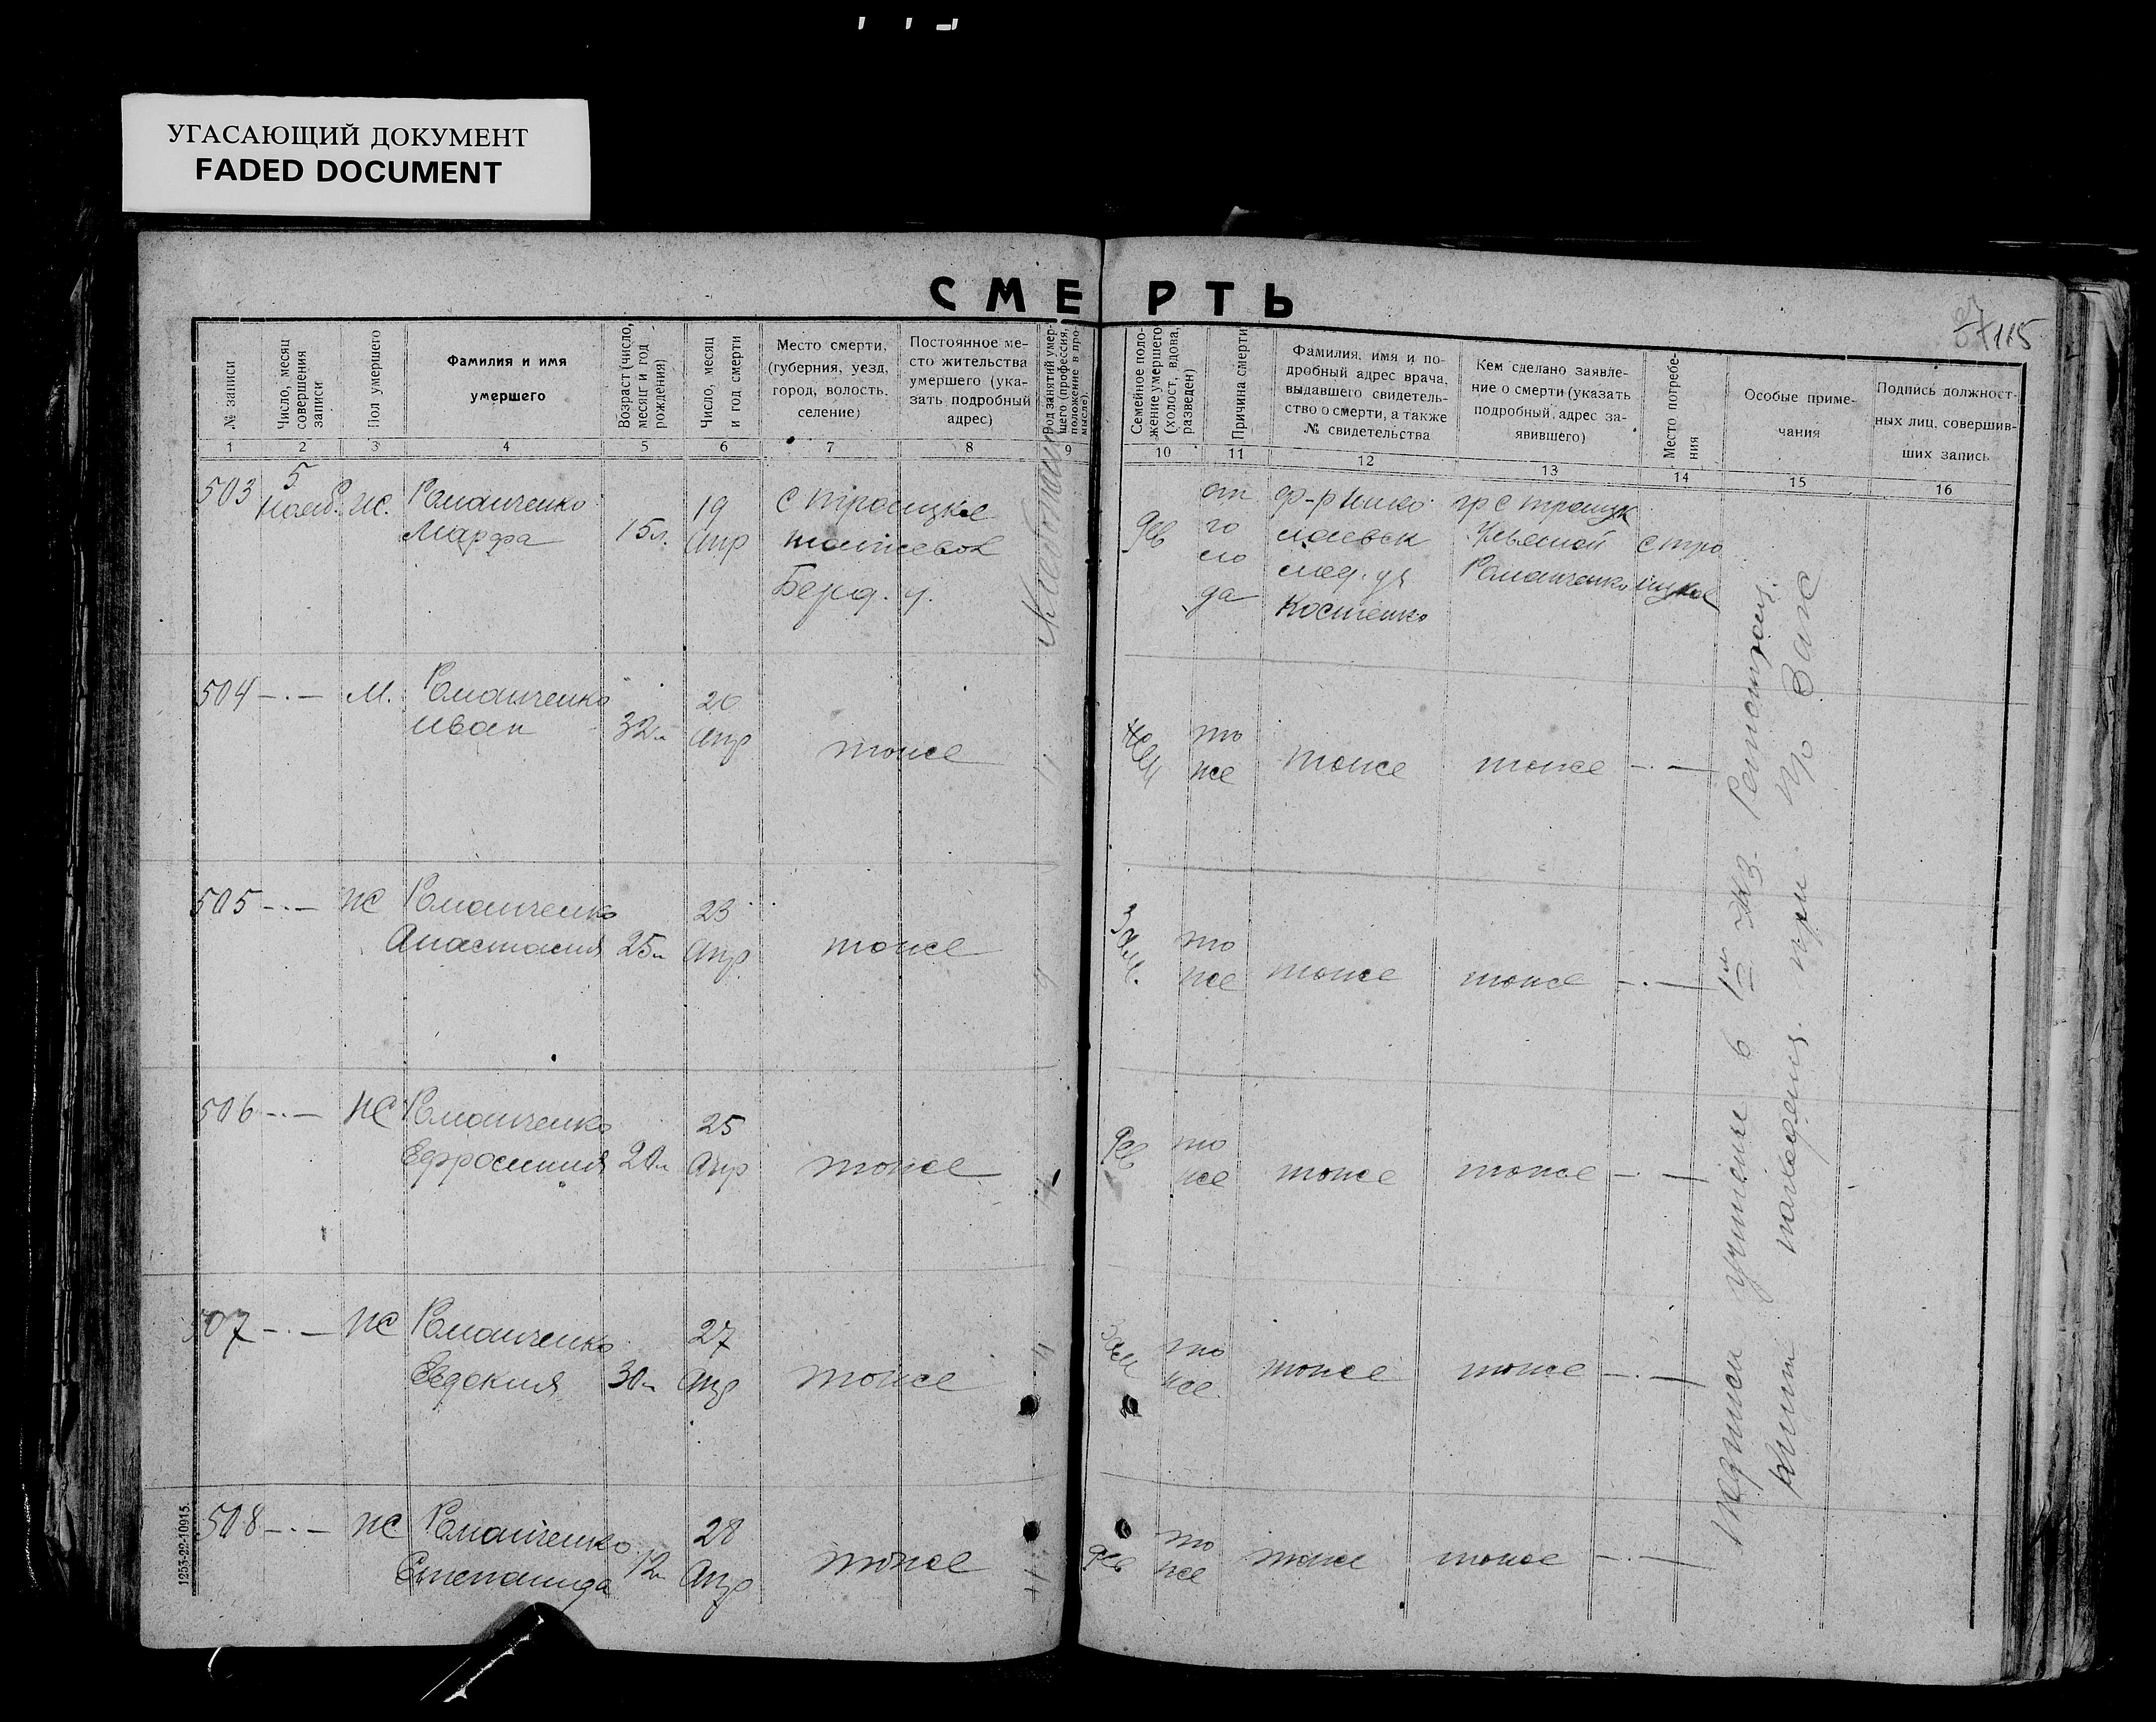 УГАСАЮЩИЙ ДОКУМЕНТ
FADED DOCUMENT
СМЕРТЬ
115
№ записи
Число, месяц
совершения
записи
Пол умершего
Фамилия и имя
умершего
Возраст (число,
месяц и год
рождения)
Число, месяц
и год смерти
Место смерти,
(губерния, уезд,
город, волость,
селение)
Постоянное ме-
сто жительства
умершего (ука-
зать подробный
адрес)
Род занятий умер-
шего (профессия,
положение в про-
мысле).
Семейное поло-
жение умершего
(холост, вдова,
разведен)
Причина смерти
Фамилия, имя и по-
дробный адрес врача,
выдавшего свидетель-
ство о смерти, а также
№ свидетельства
Кем сделано заявле-
ние о смерти (указать
подробный адрес за-
явившего)
Место погребе-
ния
Особые приме-
чания
Подпись должност-
ных лиц, совершив-
ших запись
1 2 3 4 5 6 7 8 9 10 11 12 13 14 15 16
503 5 нояб. ж. Романченко Марфа 15л. 19 Апр
с троицкое
Берд. у.
Хлебопашец
дев
от го ло да
Костенко
гр с троицк
Ульяной
Романченко
с тро
ицкое
504 –·– М. Романченко Иван 32л 20 Апр тоже
"
жен то же тоже тоже –·–
505 –·– ж Романченко Анастасия 25л 23 Апр тоже
"
Зам. то же тоже тоже –·–
506 –·– ж Романченко Ефросиния 20л 25 Апр тоже
"
дев то же тоже тоже –·–
507 –·– ж Романченко Евдокия 30л 27 Апр тоже
"
Зам то же тоже тоже –·–
508 –·– ж Романченко Степанида 12л 28 Апр тоже
"
дев то же тоже тоже –·–
Подписи учинены в 1м экз.
книги при
1253-22-10915.